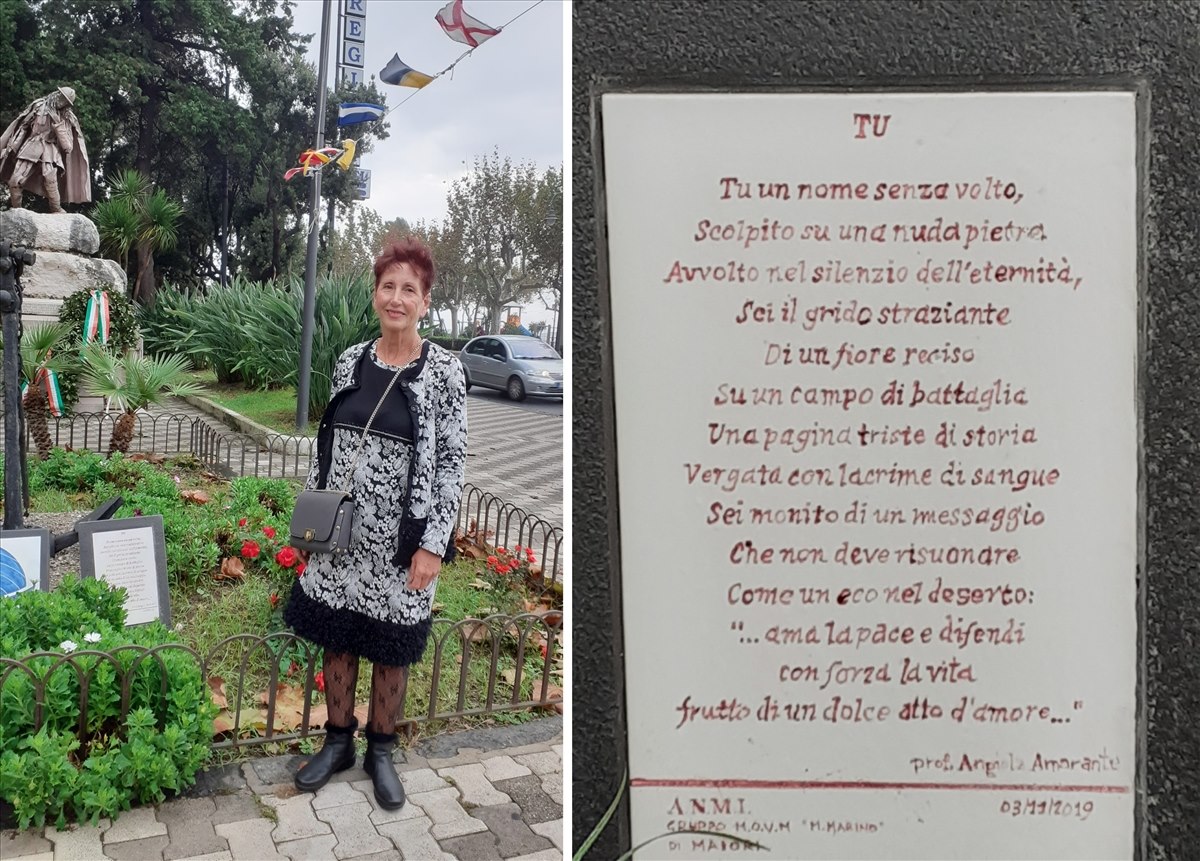 REGI
TU
Tu un nome senza volto,
Scolpito su una nuda pietra
Avvolto nel silenzio dell'eternità,
Sei il grido straziante
Di un fiore reciso
Su un campo di battaglia
Una pagina triste di storia
Vergata con lacrime di sangue
Sei monito di un messaggio
Che non deve risuonare
Come un eco nel deserto:
"... ama la pace e difendi
con forza la vita
frutto di un dolce atto d'amore..."
prof. Angiola Amarante
A.N.M.I. 03/11/2019
GRUPPO M.O.V.M "M.MARINO"
DI MAIORI